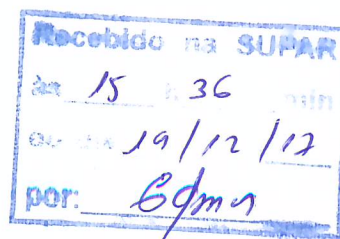 Recebido na SUPAR
às 15 h 36 min
19/12/17
por: